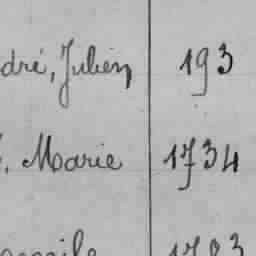 dré, Julien 193
Marie 1734
1783